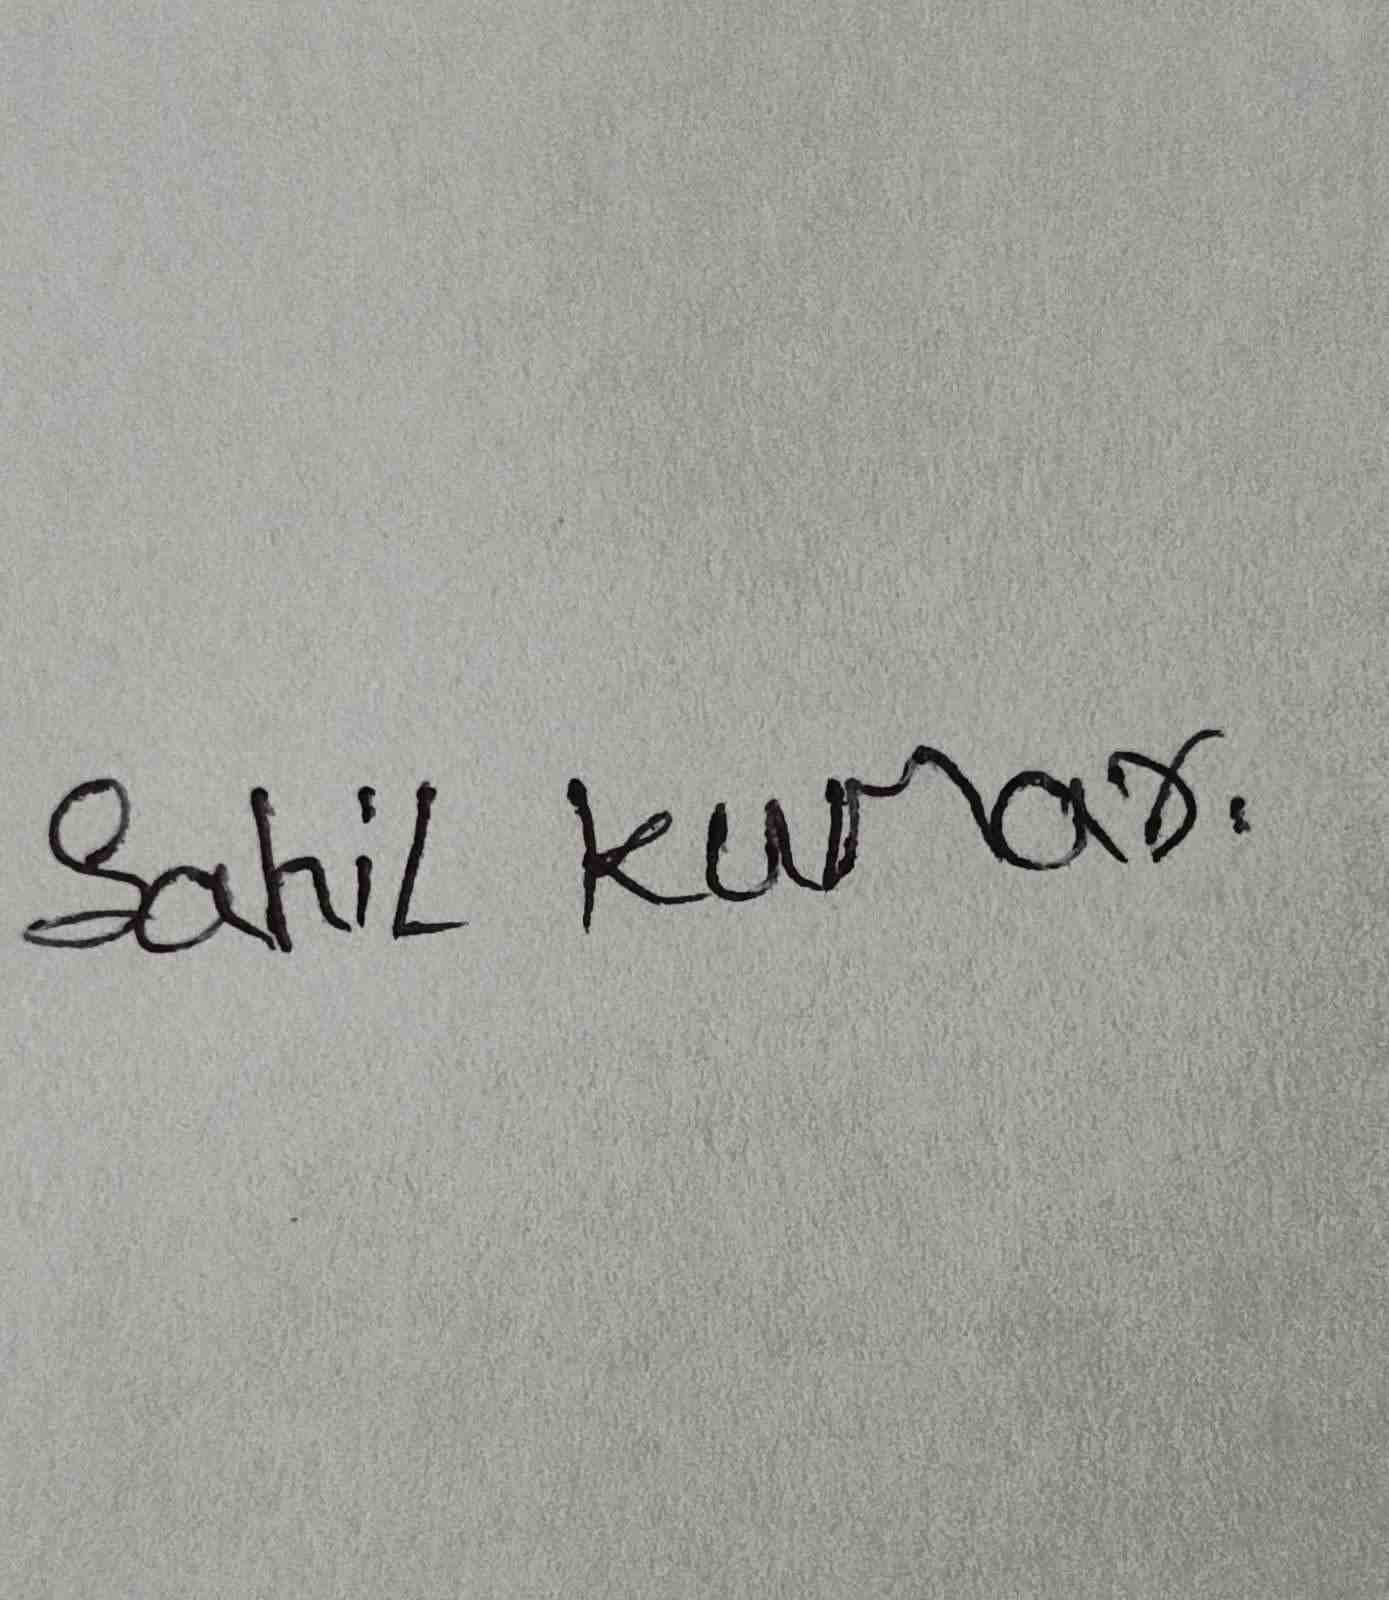 Sahil kumar.